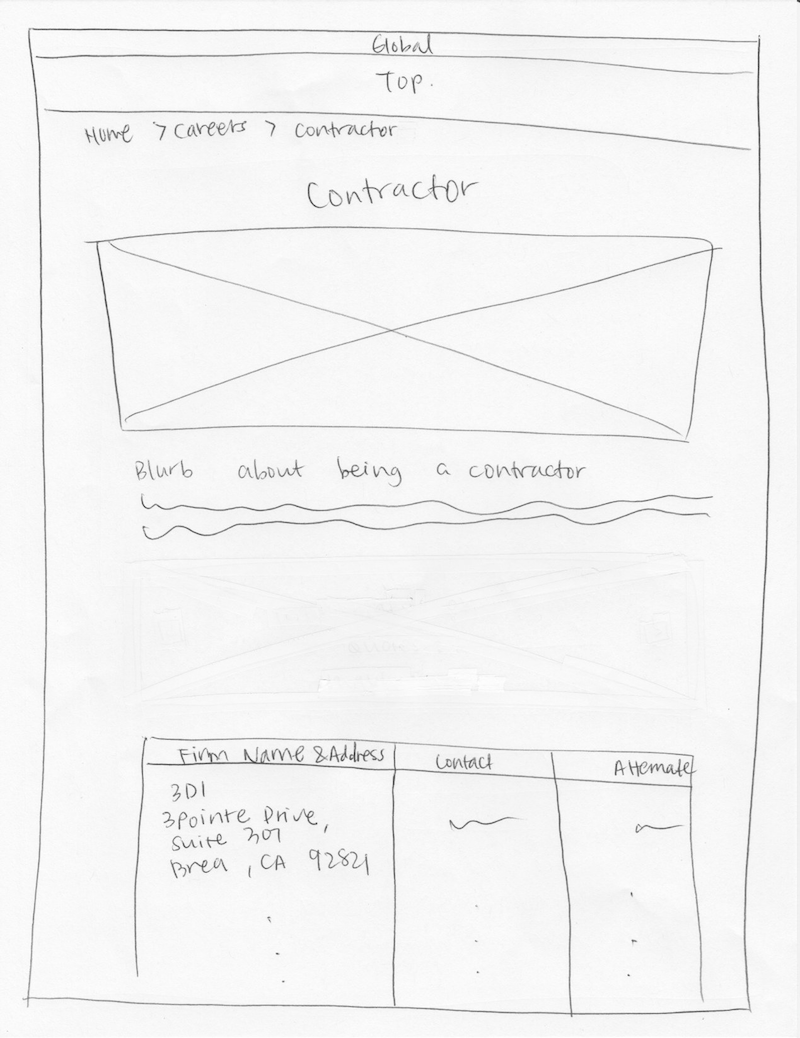 Global
Top.
Home > Careers > Contractor
Contractor
Blurb about being a contractor
Firm Name & Address
Contact
Alternate
3DI
3Pointe Drive,
Suite 307
Brea, CA 92821